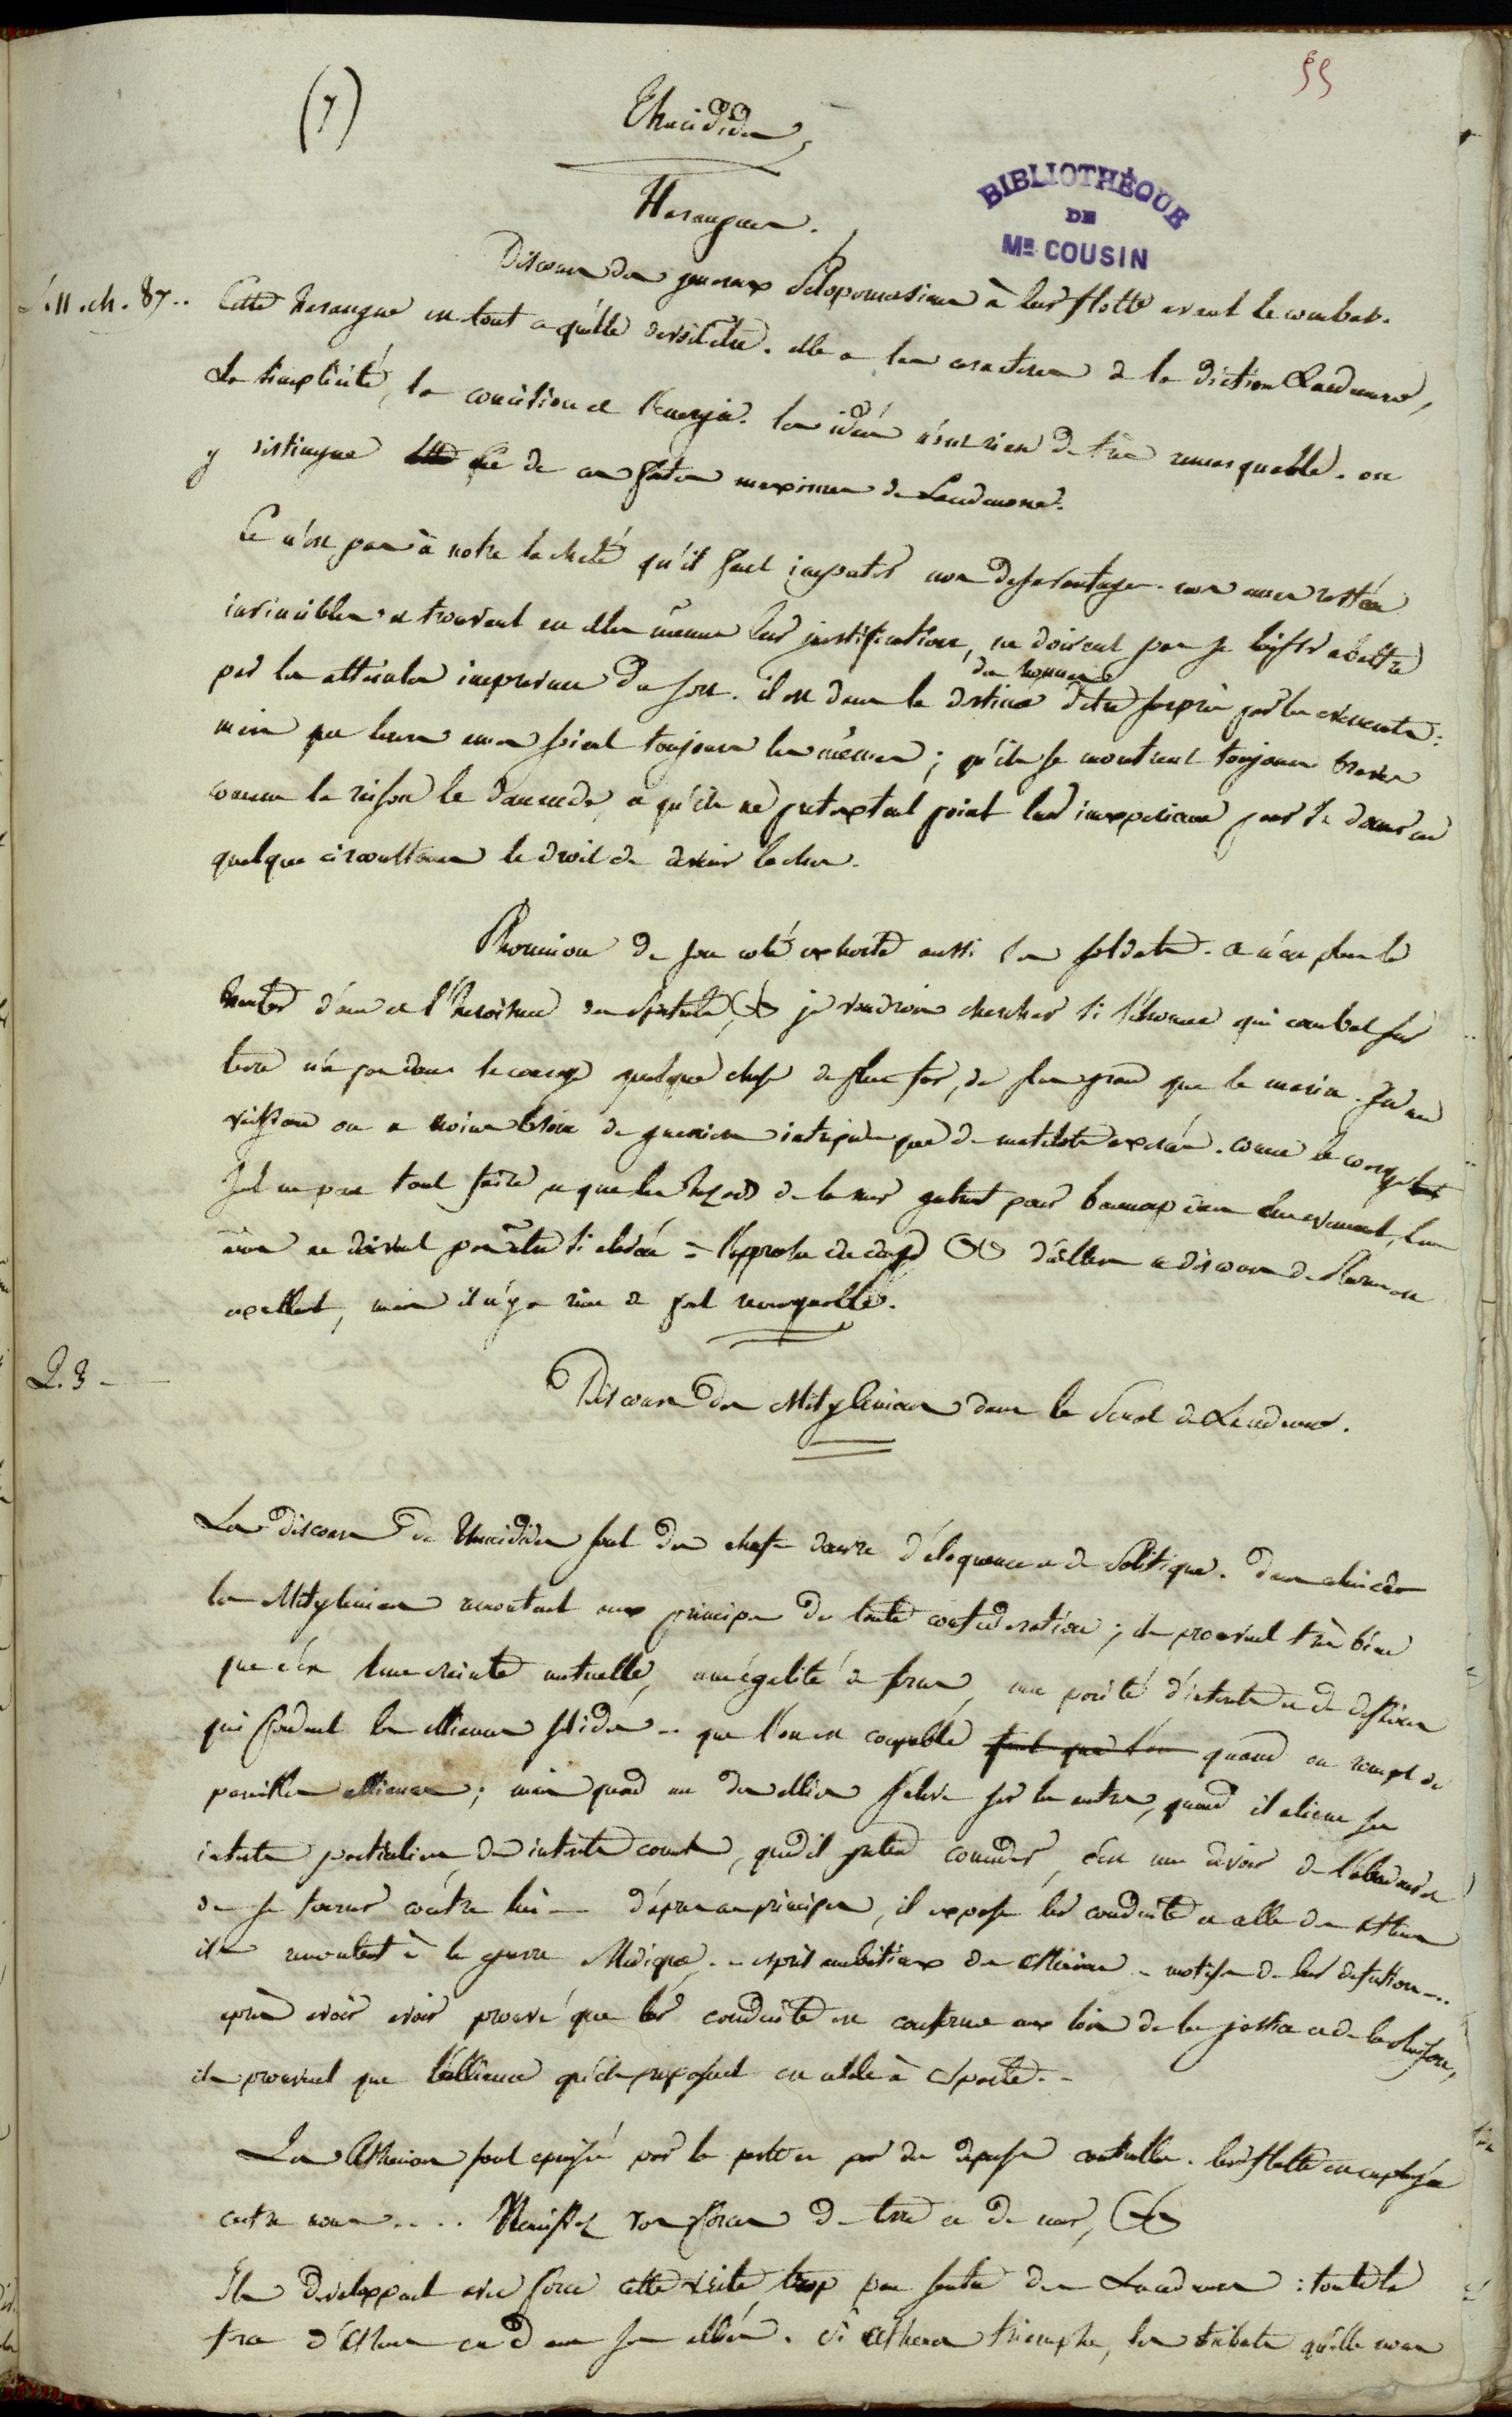 55
(7)
Thucidides
BIBLIOTHÈQUE
DE
MR COUSIN
Harangues.
Discours des generaux Peloponnesiens à leur flotte avant le combat.
L. II. ch. 87..
Cette harangue est tout ce qu'elle devoit être. elle a les caracteres de la diction Lacedemone,
la simplicité, la concision et l'energie. les idées n'ont rien de très remarquable. on
y distingue de ces fortes maximes de Lacedemone.
Ce n'est pas à notre lacheté qu'il faut imputer nos desavantages. nos ames restées
invincibles et trouvant en elles mêmes leur justification, ne doivent pas se laisser abattre
par les atteintes imprevues du sort. il est dans la destinée des hommes d'être surpris par les evenements:
mais que leurs ames soient toujours les mêmes; qu'ils se montrent toujours braves
comme la raison le demande, et qu'ils ne pretextent point leur inexperience pour se donner en
quelque circonstance le droit de devenir laches.
Phormion de son coté exhorte aussi ses soldats. ce n'est plus la
hauteur d'ame et l'heroisme de Spartiate, & je voudrois chercher si l'homme qui combat sur
terre n'a pas dans le courage quelque chose de plus fort, de plus grand que le marin. Sur un
vaisseau on a moins besoin de guerriers intrepides que de matelots exercés. comme le courage
seul ne peut tout faire et que les hazards de la mer entrent pour beaucoup dans l'evenement, les
ames ne doivent pas être si elevées à l'approche du danger & d'ailleurs ce discours de Phormion est
excellent, mais il n'y a rien de fort remarquable.
L. 3 -
Discours des Mityleniens dans le Senat de Lacedemone.
Les discours de Thucidides sont des chefs d'œuvre d'éloquence et de Politique. dans celui ci
les Mityleniens remontent aux principes de toute confederation; ils prouvent très bien
que c'est une crainte mutuelle, une égalité de forces, une parité d'interets et de
qui fondent les alliances solides -- que l'on est coupable quand on rompt de
pareilles alliances; mais quand un des alliés s'eleve sur les autres, quand il aliene ses
interets particuliers des interets communs, quand il pretend commander, c'est un devoir de l'abandonner et
de se tourner contre lui -- d'après ces principes, il expose leur conduite et celle des Atheniens
ils remontent à la guerre Medique. - esprit ambitieux des Atheniens - motifs de leur defection -..
après avoir avoir prouvé que leur conduite est conforme aux loix de la justice et de la Raison,
ils prouvent que l'alliance qu'ils proposent est utile à Sparte. -
Les Atheniens sont epuisés par la peste et par des depenses continuelles. leur flotte est employée
contre nous . . . . Reunissez vos forces de terre et de mer, &
Ils developpent avec force cette verité trop peu sentie des Lacedemoniens : toute la
force d'Athenes est dans ses alliés. Si Athenes triomphe, les tributs qu'elle nous